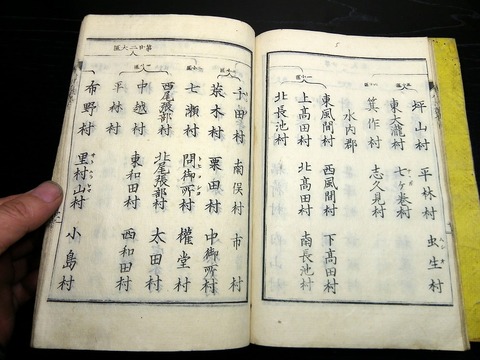 坪山村 平林村 虫生村
東大瀧村 七ケ巻村
箕作村 志久見村
水内郡
東風間村 西風間村 下高田村
上高田村 北高田村 南長池村
北長池村
第廿二大區
千田村 南俣村 市村
荒木村 栗田村 中御所村
七瀬村 問御所村 權堂村
西尾張部村 北尾張部村 太田村
中越村 東和田村 西和田村
平林村
布野村 里村山村 小島村